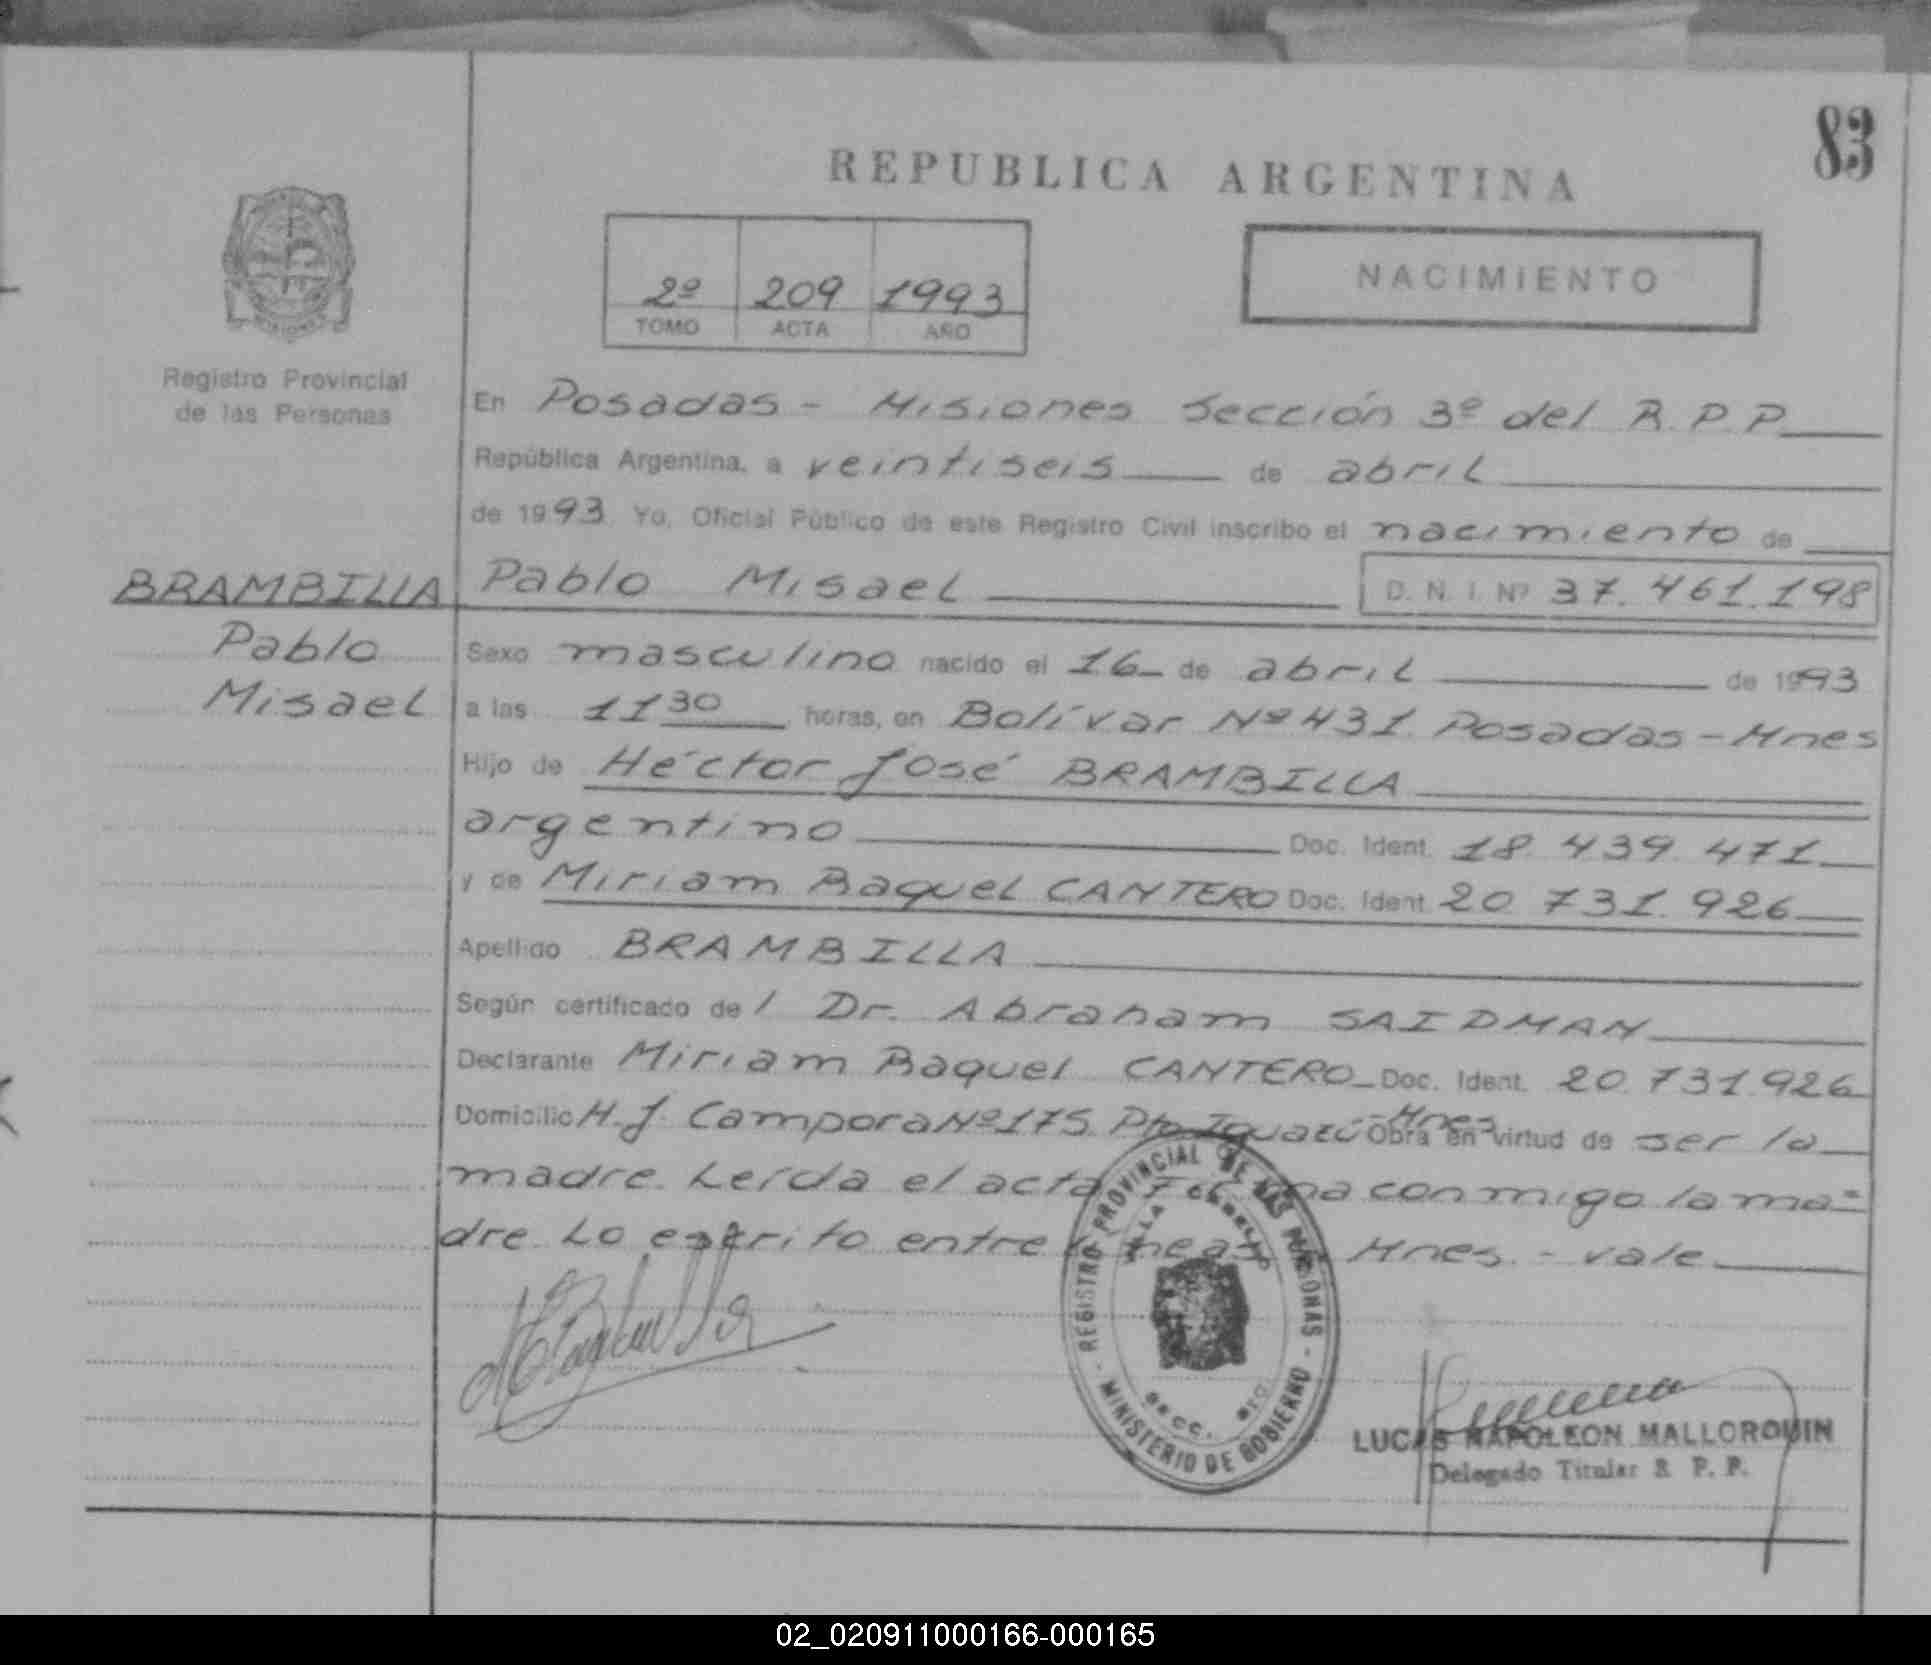 83
REPUBLICA ARGENTINA
2º 209 1993
TOMO ACTA AÑO
NACIMIENTO
Registro Provincial
de las Personas
En Posadas - Misiones Sección 3º del R.P.P.
República Argentina, a veintiseis de abril
de 1993 Yo, Oficial Público de este Registro Civil inscribo el nacimiento de
BRAMBILLA Pablo Misael D. N. I. Nº 37.461.198
Pablo
Misael
Sexo masculino nacido el 16 de abril de 1993
a las 11 30 horas, en Bolívar Nº 431 Posadas - Mnes
Hijo de Héctor José BRAMBILLA
argentino Doc. Ident. 18.439.471
y de Miriam Raquel CANTERO Doc. Ident. 20.731.926
Apellido BRAMBILLA
Según certificado del Dr. Abraham SAIDMAN
Declarante Miriam Raquel CANTERO Doc. Ident. 20.731.926
Domicilio H. J. Campora Nº 175 Pto Iguazú - Mnes Obra en virtud de ser la
madre. Leída el acta conmigo la ma=
dre. Lo escrito entre líneas: Mnes. - vale
REGISTRO PROVINCIAL DE LAS PERSONAS
MINISTERIO DE GOBIERNO
VILLA
SECC.
LUCAS NAPOLEON MALLORQUIN
Delegado Titular R. P. P.
02_020911000166-000165